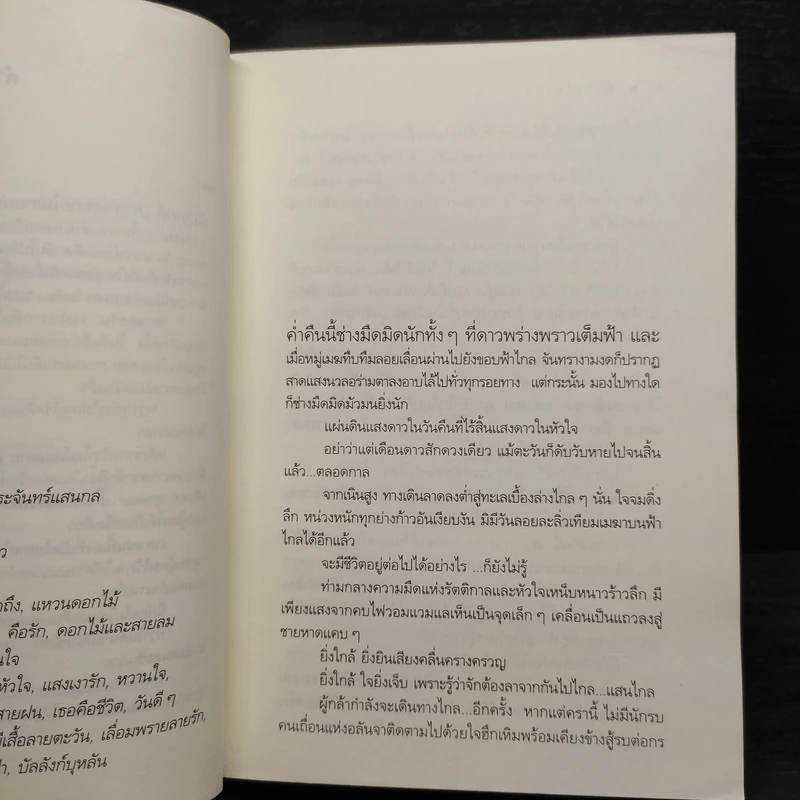 ระจันทร์แสนกล
ว
ถึง, แหวนดอกไม้
คือรัก, ดอกไม้และสายลม
นใจ
หัวใจ, แสงเงารัก, หวานใจ,
สายฝน, เธอคือชีวิต, วันดี ๆ
ีเสื้อลายตะวัน, เลื่อมพรายลายรัก,
า, บัลลังก์บุหลัน
ค่ำคืนนี้ช่างมืดมิดนักทั้ง ๆ ที่ดาวพร่างพราวเต็มฟ้า และ
เมื่อหมู่เมฆทึบทึมลอยเลื่อนผ่านไปยังขอบฟ้าไกล จันทรางามงดก็ปรากฏ
สาดแสงนวลอร่ามตาลงอาบไล้ไปทั่วทุกรอยทาง แต่กระนั้น มองไปทางใด
ก็ช่างมืดมิดมัวมนยิ่งนัก
แผ่นดินแสงดาวในวันคืนที่ไร้สิ้นแสงดาวในหัวใจ
อย่าว่าแต่เดือนดาวสักดวงเดียว แม้ตะวันก็ดับวับหายไปจนสิ้น
แล้ว...ตลอดกาล
จากเนินสูง ทางเดินลาดลงต่ำสู่ทะเลเบื้องล่างไกล ๆ นั่น ใจจมดิ่ง
ลึก หน่วงหนักทุกย่างก้าวอันเงียบงัน มิมีวันลอยละลิ่วเทียมเมฆาบนฟ้า
ไกลได้อีกแล้ว
จะมีชีวิตอยู่ต่อไปได้อย่างไร ...ก็ยังไม่รู้
ท่ามกลางความมืดแห่งรัตติกาลและหัวใจเหน็บหนาวร้าวลึก มี
เพียงแสงจากคบไฟวอมแวมแลเห็นเป็นจุดเล็ก ๆ เคลื่อนเป็นแถวลงสู่
ชายหาดแคบ ๆ
ยิ่งใกล้ ยิ่งยินเสียงคลื่นครางครวญ
ยิ่งใกล้ ใจยิ่งเจ็บ เพราะรู้ว่าจักต้องลาจากกันไปไกล...แสนไกล
ผู้กล้ากำลังจะเดินทางไกล...อีกครั้ง หากแต่ครานี้ ไม่มีนักรบ
คนเถื่อนแห่งอลันจาติดตามไปด้วยใจฮึกเหิมพร้อมเคียงข้างสู้รบต่อกร